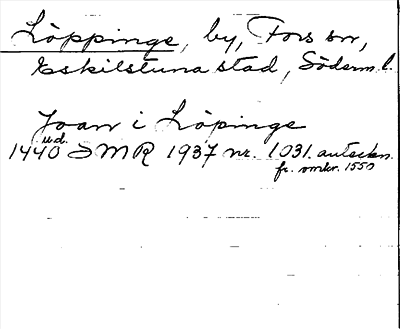 Löppinge, by, Fors sn,
Eskilstuna stad, Söderm l.
Joan i Löpinge
1440 u.d. SMR 1937 nr. 1031. anteckn.
fr. omkr. 1550